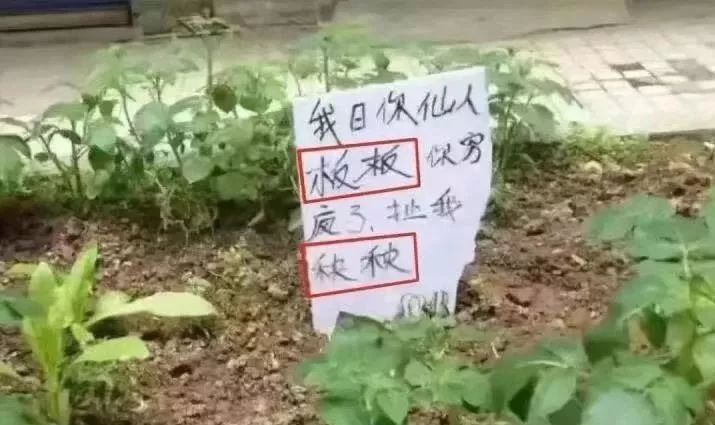 我日你仙人
板板你穷
疯了、扯我
秧秧